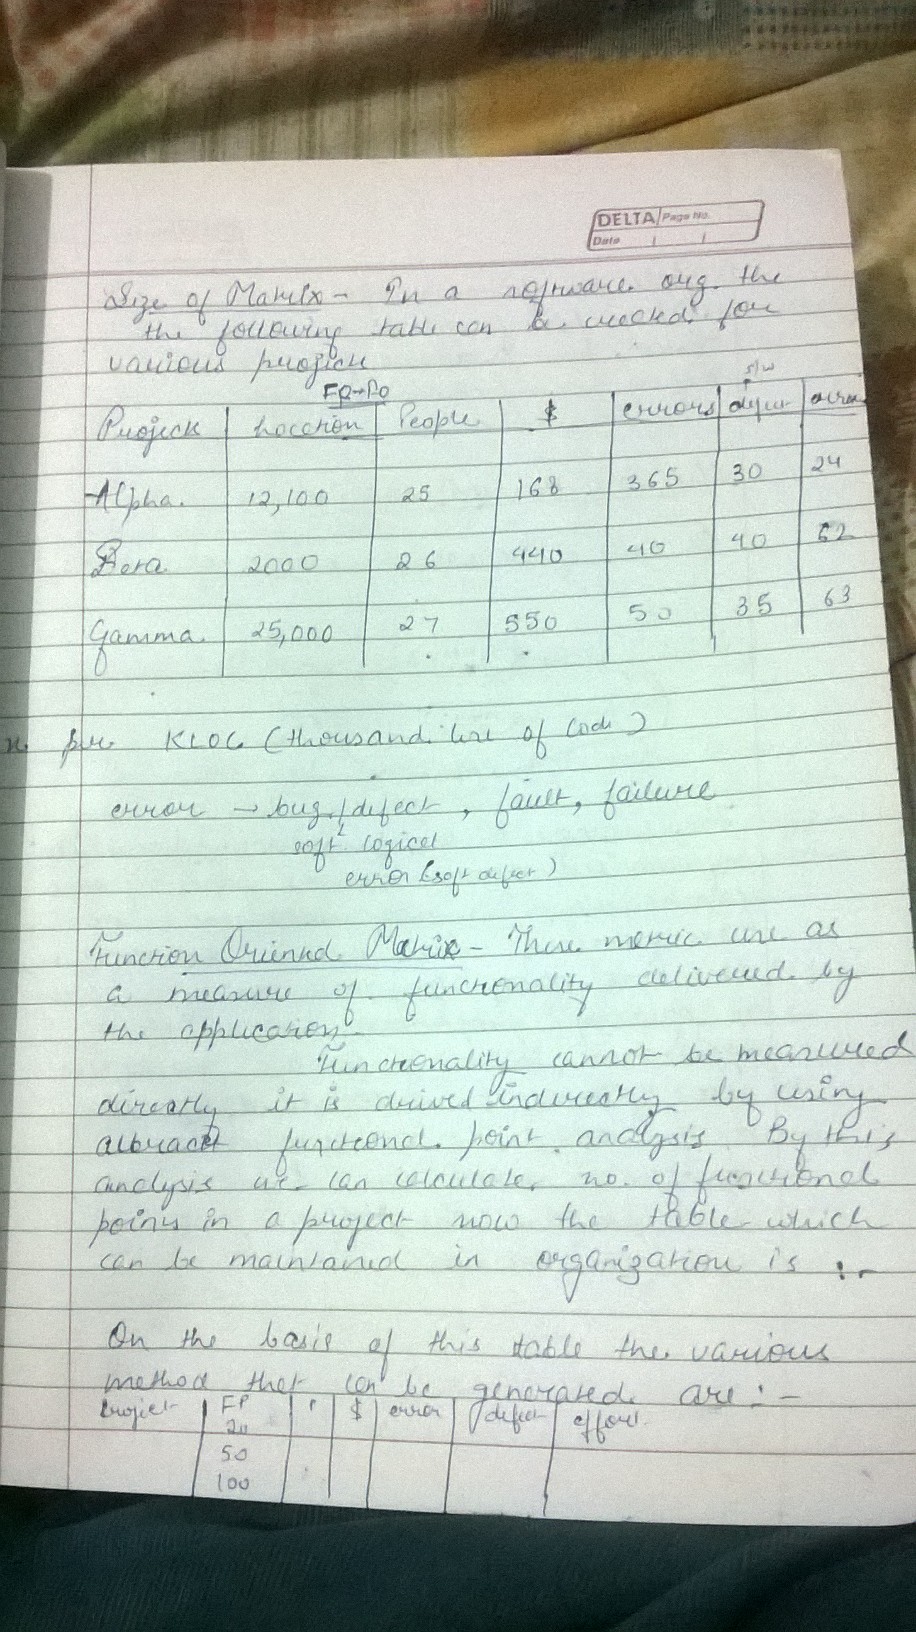 DELTA Page No.
Date
Size of Matrix - In a software org. the
the following table can be created for
various project
Project Location People $ errors
Alpha. 12,100 25 168 365 30 24
Beta 2000 26 440 40 40 62
Gamma. 25,000 27 550 50 35 63
KLOC (thousand line of Code)
error → bug/defect, fault, failure
soft logical
error (soft defect)
Function Oriented Matrix - These metric use as
a measure of functionality delivered by
the application.
Functionality cannot be measured
directly it is drived indirectly by using
functional point analysis By this
analysis we can calculate no. of functional
points in a project now the table which
can be maintained in organization is :-
On the basis of this table the various
method that can be generated are :-
Project FP $ error defect effort
20
50
100